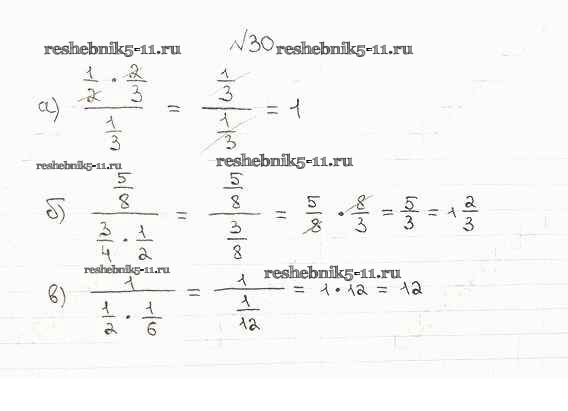 №30
reshebnik5-11.ru reshebnik5-11.ru
а) (1/2 · 2/3)/(1/3) = (1/3)/(1/3) = 1
reshebnik5-11.ru reshebnik5-11.ru
б) (5/8)/(3/4 · 1/2) = (5/8)/(3/8) = 5/8 · 8/3 = 5/3 = 1 2/3
reshebnik5-11.ru reshebnik5-11.ru
в) 1/(1/2 · 1/6) = 1/(1/12) = 1 · 12 = 12